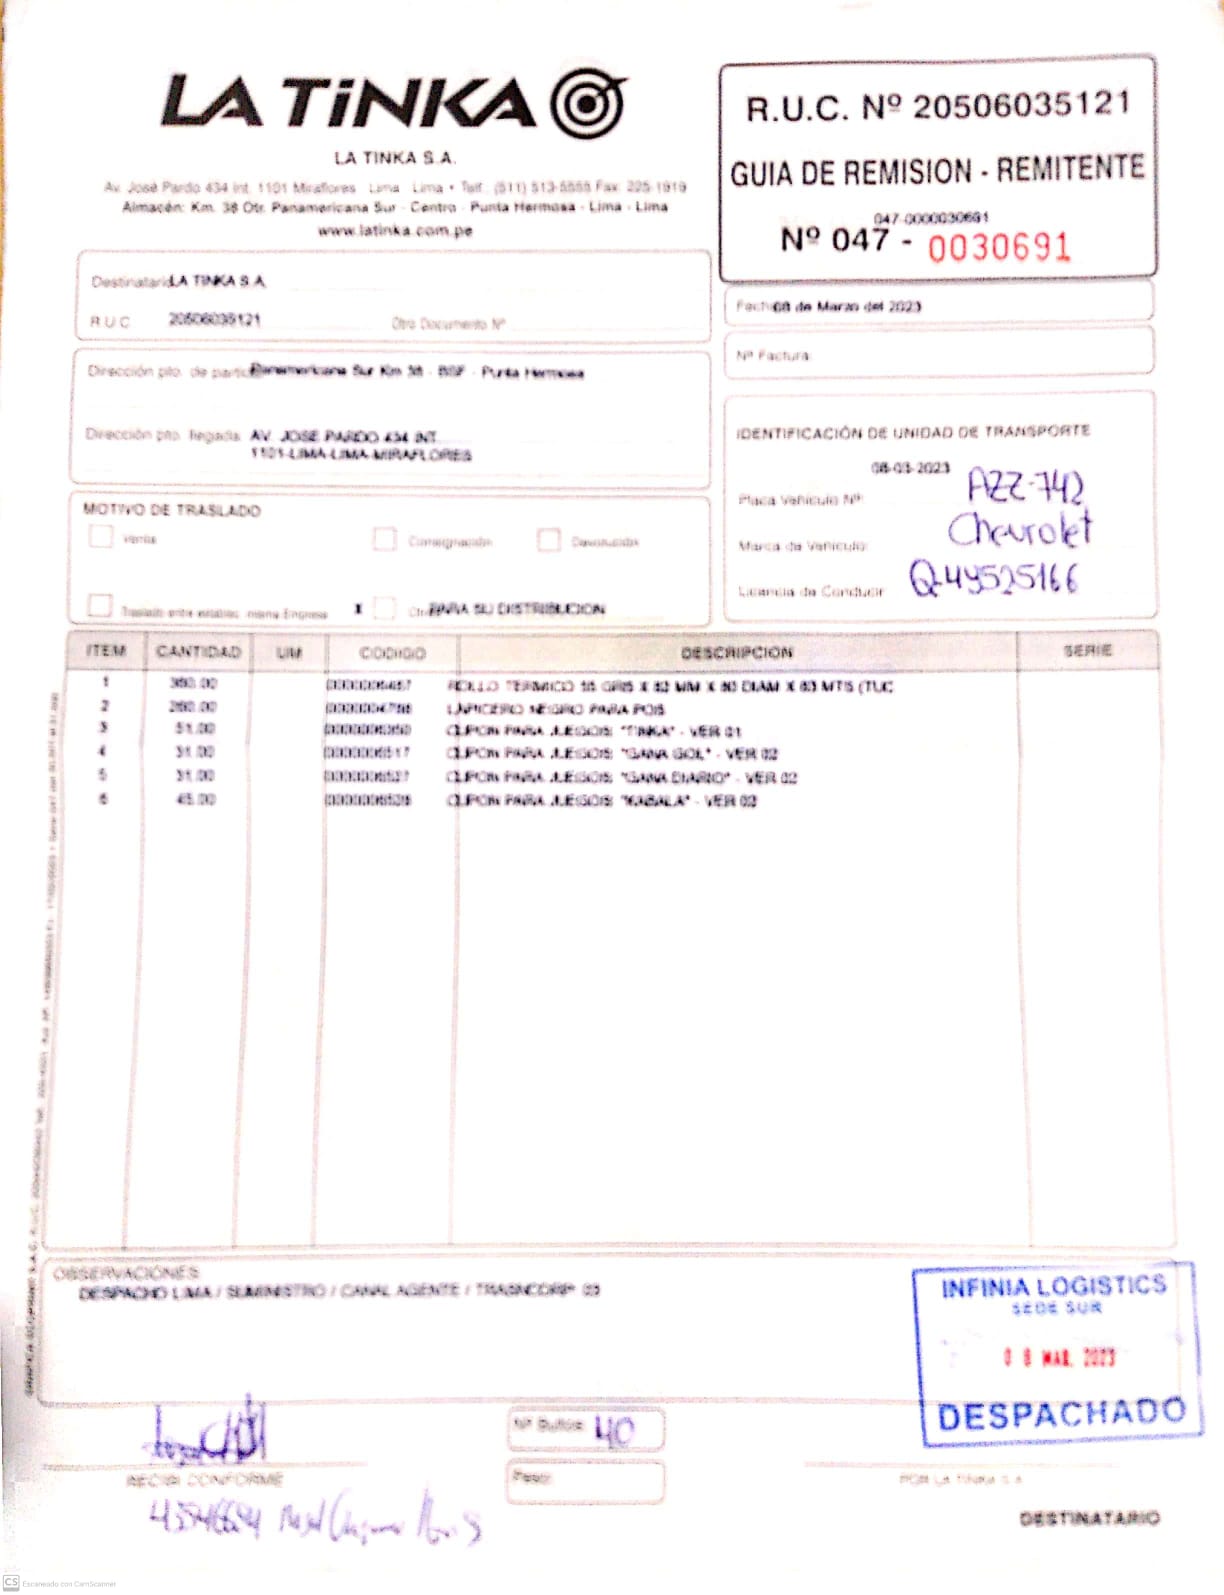 LA TiNKA
LA TINKA S.A.
Av. José Pardo 434 Int. 1101 Miraflores Lima Lima • Telf.: (511) 513-5555 Fax: 225-1919
Almacén: Km. 38 Otr. Panamericana Sur - Centro - Punta Hermosa - Lima - Lima
www.latinka.com.pe
R.U.C. Nº 20506035121
GUIA DE REMISION - REMITENTE
047-0000030691
Nº 047 - 0030691
Destinatario LA TINKA S A
R U C 20506035121 Otro Documento Nº
Fecha 08 de Marzo del 2023
Nº Factura
Dirección pto. de partida Panamericana Sur Km 38 - BSF - Punta Hermosa
Dirección pto. llegada AV. JOSE PARDO 434 INT.
1101-LIMA-LIMA-MIRAFLORES
IDENTIFICACIÓN DE UNIDAD DE TRANSPORTE
08-03-2023
Placa Vehículo Nº AZZ-742
Marca de Vehículo Chevrolet
Licencia de Conducir Q-49525166
MOTIVO DE TRASLADO
Venta Consignación Devolución
Traslado entre establec. misma Empresa X Otros PARA SU DISTRIBUCION
ITEM CANTIDAD UM CODIGO DESCRIPCION SERIE
1 360.00 ROLLO TERMICO 55 GRS X 82 MM X 80 DIAM X 83 MTS (TUC
2 260.00 LAPICERO NEGRO PARA POS
3 51.00 CUPON PARA JUEGOS: "TINKA" - VER 01
4 31.00 CUPON PARA JUEGOS: "GANA GOL" - VER 02
5 31.00 CUPON PARA JUEGOS: "GANA DIARIO" - VER 02
6 45.00 CUPON PARA JUEGOS: "KABALA" - VER 02
OBSERVACIONES
DESPACHO LIMA / SUMINISTRO / CANAL AGENTE / TRASNCORP 03
INFINIA LOGISTICS
SEDE SUR
0 8 MAR. 2023
DESPACHADO
Nº Bultos 40
Peso:
RECIBI CONFORME
POR LA TINKA S.A.
DESTINATARIO
CS Escaneado con CamScanner